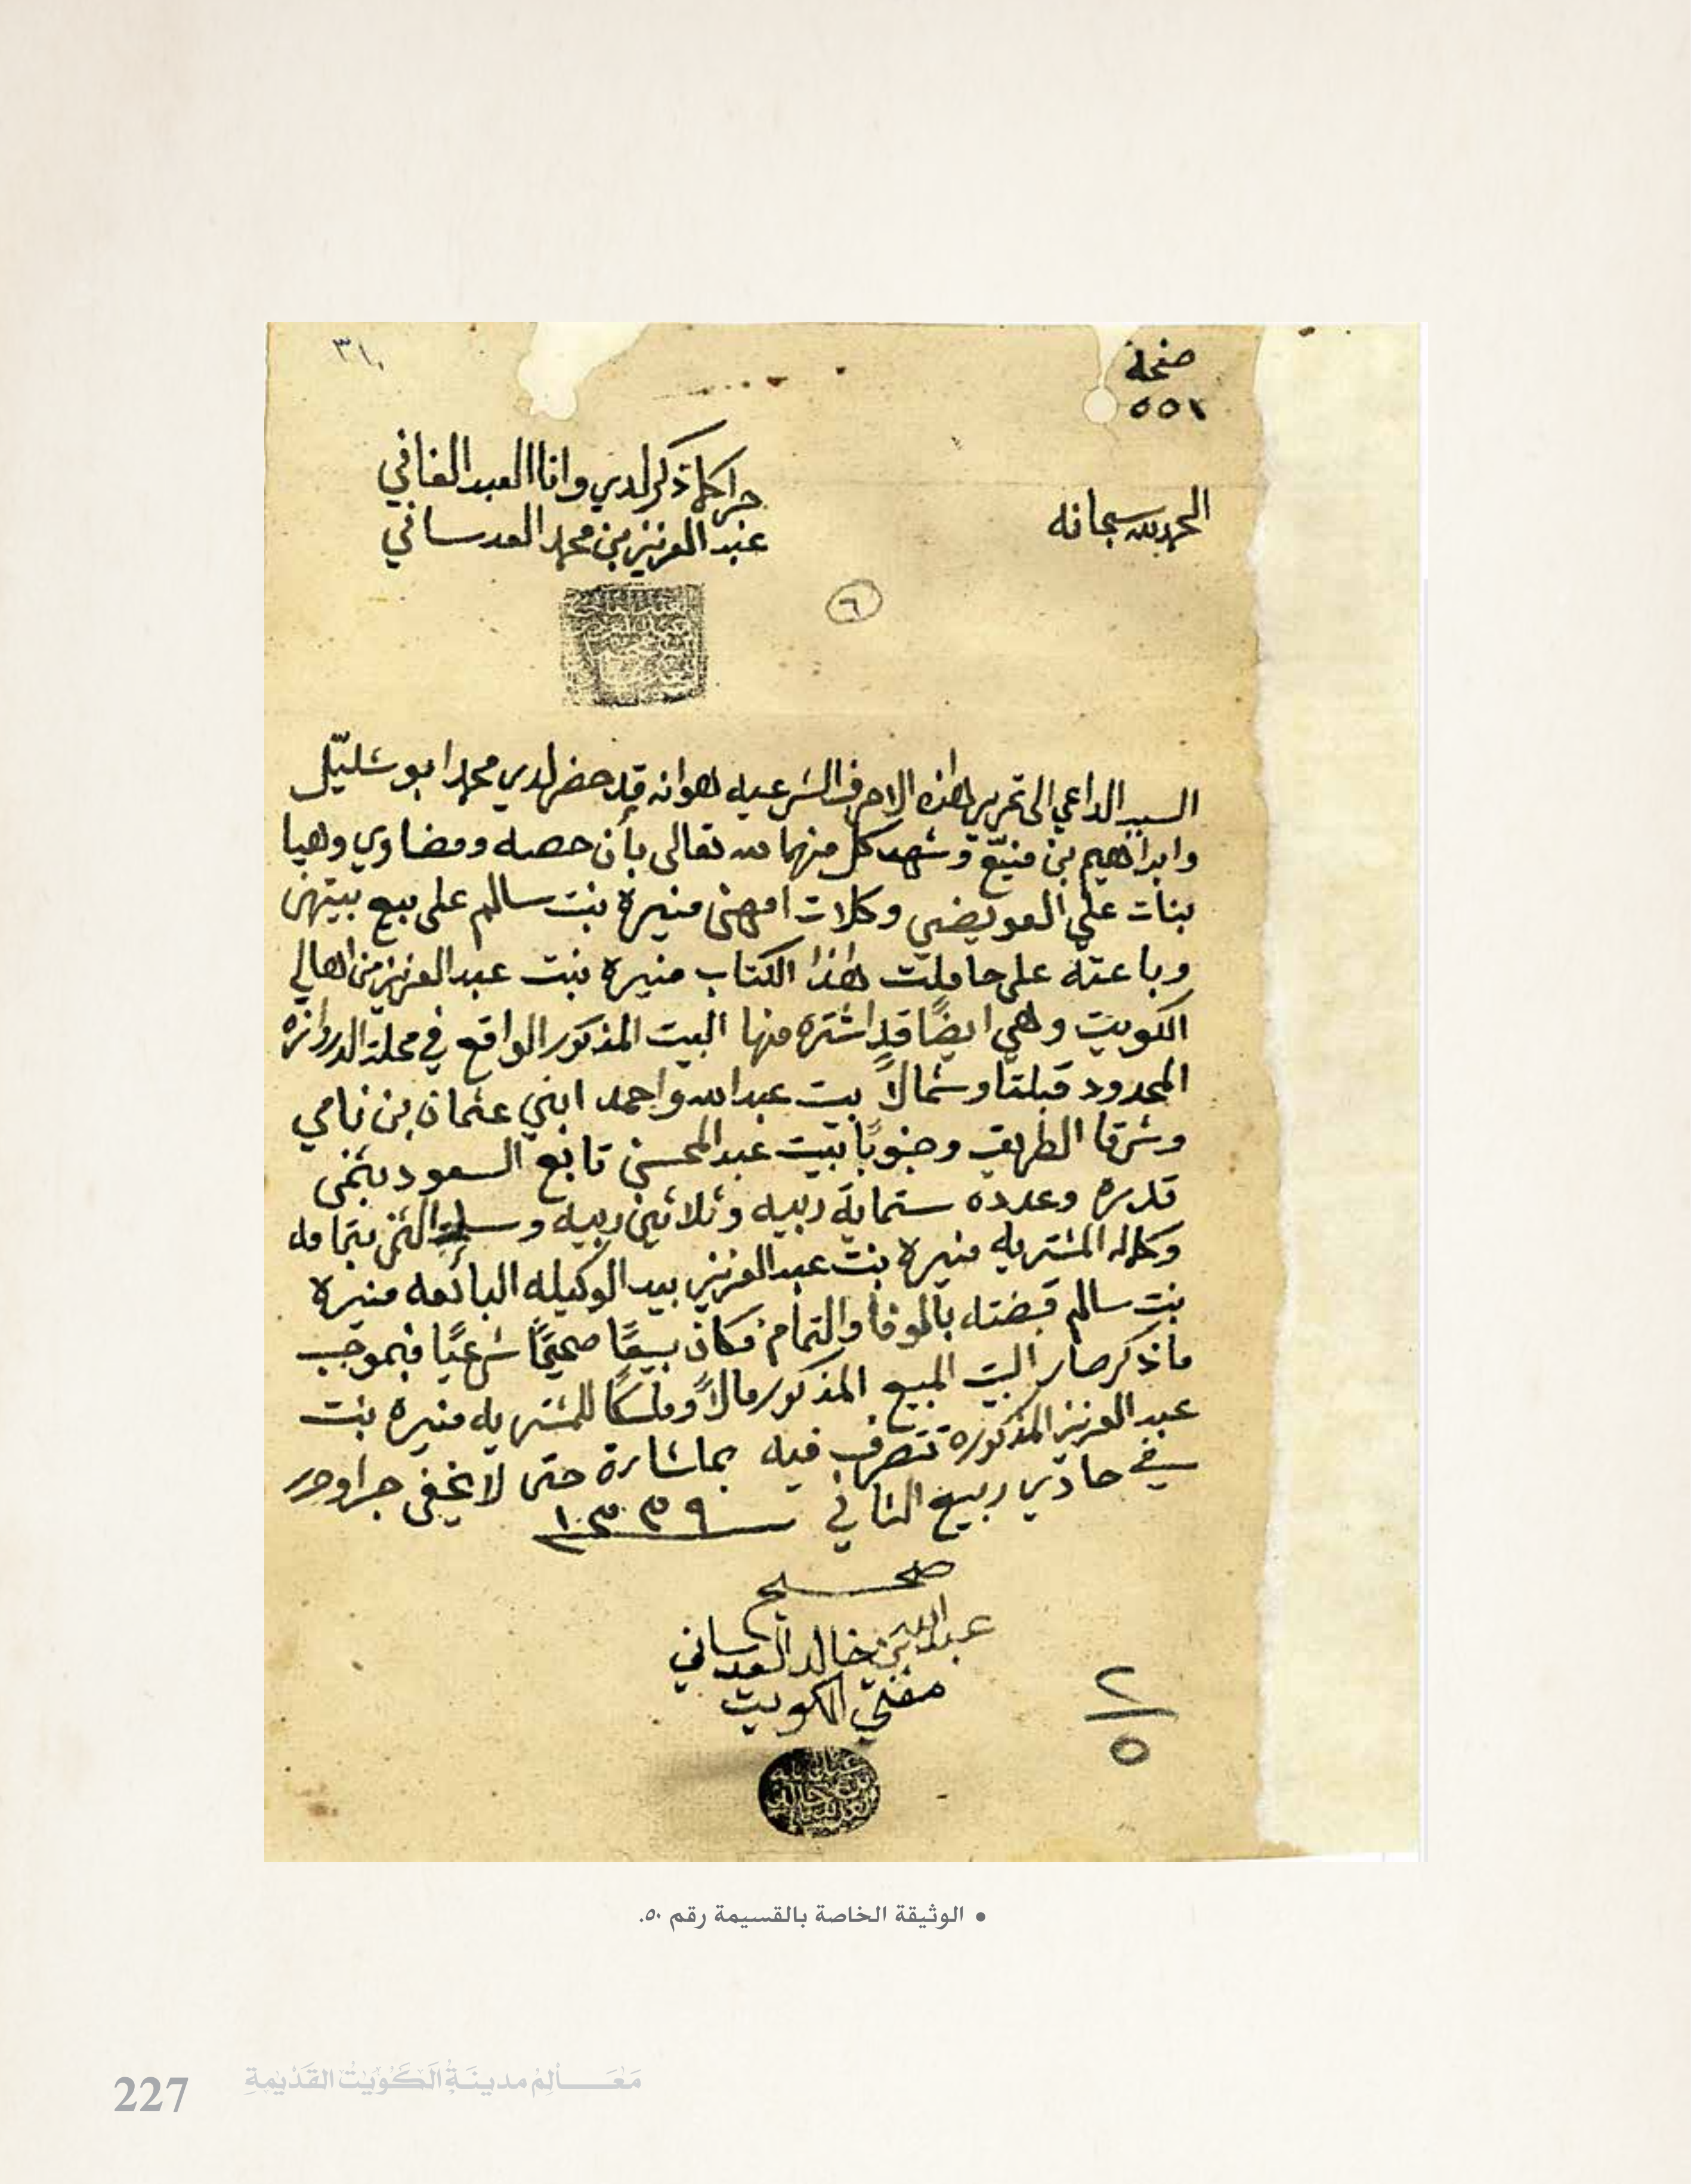 صفحة
٥٥١
٣١٠
الحمد لله سبحانه
جرا كما ذكر لدي وانا العبد الفاني
عبد العزيز بن محمد العدساني
٦
السبب الداعي الى تحرير هذه الاحرف الشرعيه هو انه قد حضر لدي محمد ابو شليبل
وابراهيم بن منيّع وشهد كل منهما لله تعالى بأن حصه ومضاوي وهيا
بنات علي العويضي وكلات امهن منيرة بنت سالم على بيع بيتهن
وباعته على حاملت هذا الكتاب منيره بنت عبد العزيز من اهالي
الكويت وهي ايضًا قد اشتره منها البيت المذكور الواقع في محلة الدروازه
المحدود قبلتا وشمالاً بيت عبد الله واحمد ابني عثمان بن نامي
وشرقا الطريق وجنوبًا بيت عبد المحسن تابع السعود بثمن
قدره وعدده ستماية ربيه وثلاثين ربيه وسلمت الثمن بتمامه
وكماله المشتريه منيره بنت عبد العزيز بيد الوكيله البائعه منيرة
بنت سالم قبضته بالوفا والتمام فكان بيعًا صحيحًا شرعيًا فبموجب
ما ذكر صار البيت المبيع المذكور مالاً وملكًا للمشتريه منيره بنت
عبد العزيز المذكورة تتصرف فيه بما شاءرة حتى لا يخفى جرا وحرر
في حادي ربيع الثاني ١٣٣٩
صحيح
عبد الله بن خالد العدساني
مفتي الكويت
٢
٥
• الوثيقة الخاصة بالقسيمة رقم ٥٠.
227 مَعَالِم مدينَة الكُوَيْت القَدْيمَة